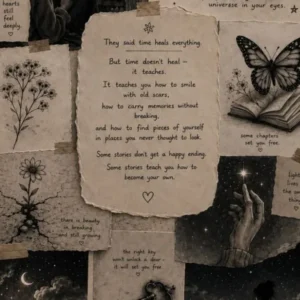 hearts
still
feel
deeply.
universe in your eyes.
They said time heals everything.
But time doesn't heal —
it teaches.
It teaches you how to smile
with old scars,
how to carry memories without
breaking,
and how to find pieces of yourself
in places you never thought to look.
Some stories don't get a happy ending.
Some stories teach you how to
become your own.
some chapters
set you free.
there is beauty
in breaking
and still growing.
the right key
won't unlock a door -
it will set you free
light
lives
the you
thing